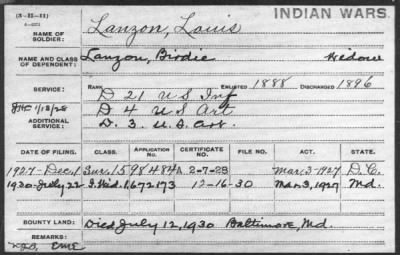 (3-22-11)
INDIAN WARS.
NAME OF SOLDIER: Lanzon, Louis
NAME AND CLASS OF DEPENDENT: Lanzon, Birdie Widow
SERVICE: RANK. ENLISTED 1888 DISCHARGED 1896
D 21 U S Inf
JHC 1/13/28 D 4 U S Art
ADDITIONAL SERVICE: D. 3. U.S. Art.
DATE OF FILING. CLASS. APPLICATION NO. CERTIFICATE NO. FILE NO. ACT. STATE.
1927-Dec. 1 Sur. 1598484 A 2-7-28 Mar. 3-1927 D.C.
1930-July 22 I. Wid. 1,672,173 12-16-30 Mar. 3, 1927 Md.
BOUNTY LAND: Died July 12, 1930 Baltimore, Md.
REMARKS: EME